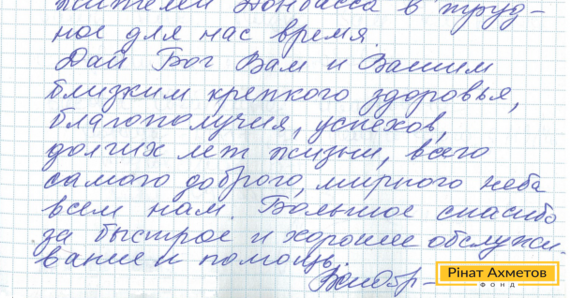 жителей Донбасса в труд-
ное для нас время.
Дай Бог Вам и Вашим
близким крепкого здоровья,
благополучия, успехов,
долгих лет жизни, всего
самого доброго, мирного неба
всем нам. Большое спасибо
за быстрое и хорошее обслужи-
вание и помощь.
Рінат Ахметов
ФОНД